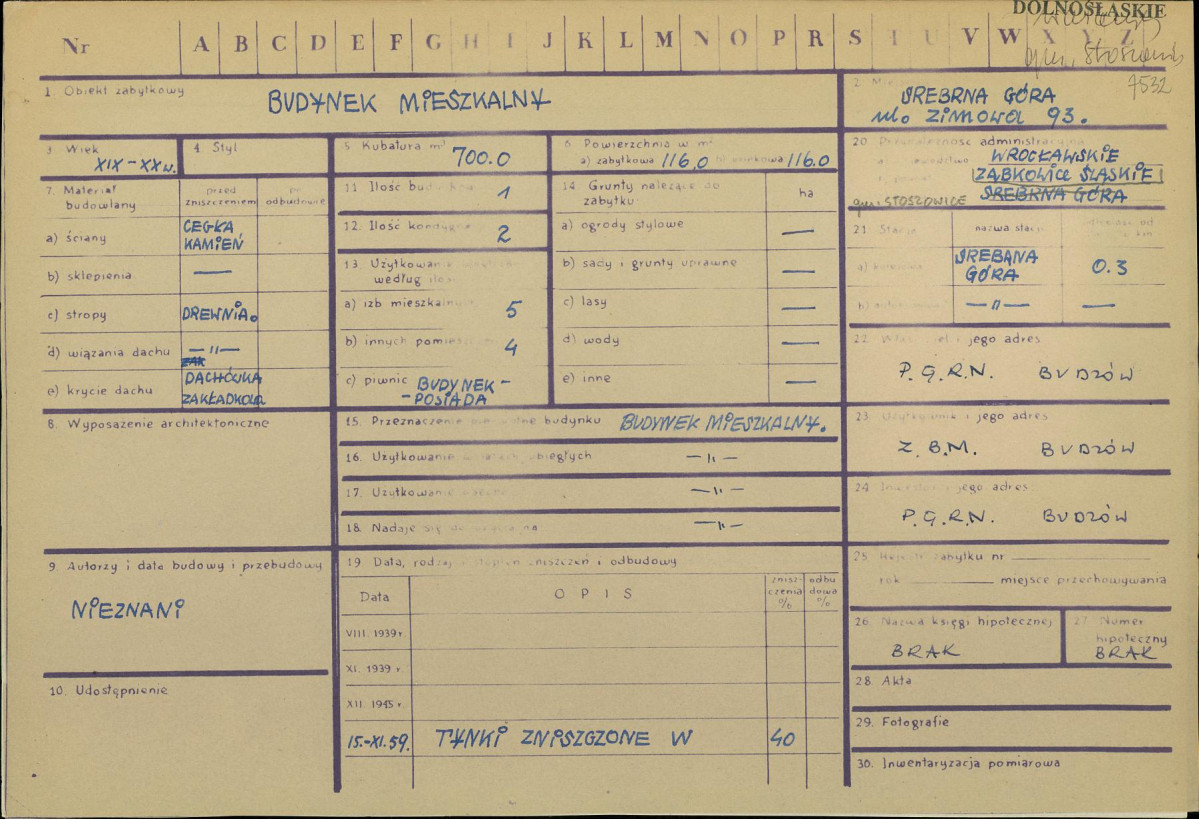 DOLNOŚLĄSKIE
Nr A B C D E F G H I J K L M N O P R S T U V W X Y Z
gm. Stoszowice
7532
1. Obiekt zabytkowy
BUDYNEK MIESZKALNY
2.
SREBRNA GÓRA
ul. ZIMOWA 93.
3. Wiek
XIX-XX w.
4. Styl
5. Kubatura m³
700.0
6. Powierzchnia w m²
a) zabytkowa 116,0 116.0
20. Przynależność administracyjna
WROCŁAWSKIE
ZĄBKOWICE ŚLĄSKIE
gm. STOSZOWICE SREBRNA GÓRA
7. Materiał budowlany
przed zniszczeniem
po odbudowie
a) ściany
CEGŁA
KAMIEŃ
b) sklepienia —
c) stropy DREWNIA.
d) wiązania dachu —"—
ZAK
e) krycie dachu
DACHÓWKA
ZAKŁADKOWA
11. Ilość bud 1
12. Ilość kondygn 2
13. Użytkowanie
według
a) izb mieszkalnych 5
b) innych pomieszczeń 4
c) piwnic BUDYNEK -
- POSIADA
14. Grunty należące do zabytku
ha
a) ogrody stylowe —
b) sady i grunty uprawne —
c) lasy —
d) wody —
e) inne —
21. Stacja
nazwa stacji
km
SREBRNA
GÓRA
0.3
—"— —
22. Właściciel i jego adres
P.G.R.N. BUDZÓW
23. Użytkownik i jego adres
Z.B.M. BUDZÓW
24. Inwestor i jego adres
P.G.R.N. BUDZÓW
8. Wyposażenie architektoniczne
15. Przeznaczenie pierwotne budynku BUDYNEK MIESZKALNY.
16. Użytkowanie w latach ubiegłych —"—
17. Użytkowanie —"—
18. Nadaje się do —"—
9. Autorzy i data budowy i przebudowy
NIEZNANI
10. Udostępnienie
19. Data, rodzaj i stopień zniszczeń i odbudowy
Data
OPIS
zniszczenia %
odbudowa %
VIII. 1939 r.
XI. 1939 r.
XII. 1945 r.
15.-XI.59. TYNKI ZNISZCZONE W 40
25. Rejestr zabytku nr
rok miejsce przechowywania
26. Nazwa księgi hipotecznej
BRAK
27. Numer hipoteczny
BRAK
28. Akta
29. Fotografie
30. Inwentaryzacja pomiarowa